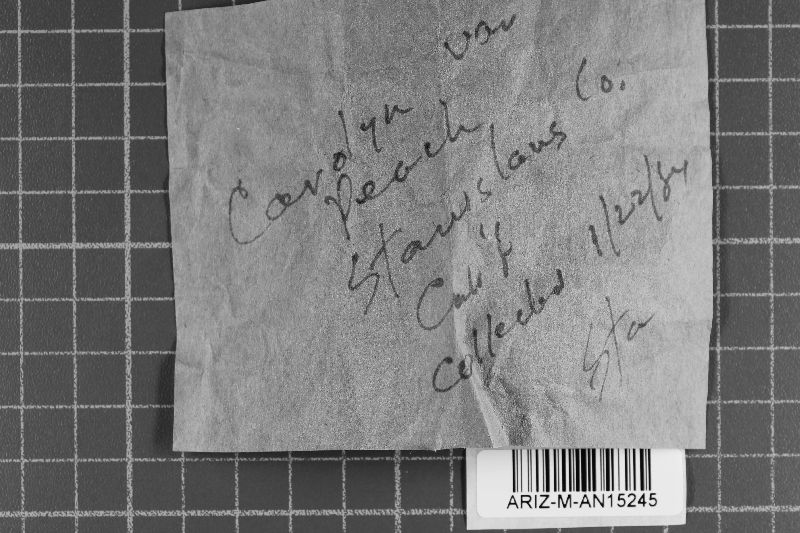 Carolyn var
Peach
Stanislaus Co.
Calif
Collected 1/22/84
Sta
ARIZ-M-AN15245